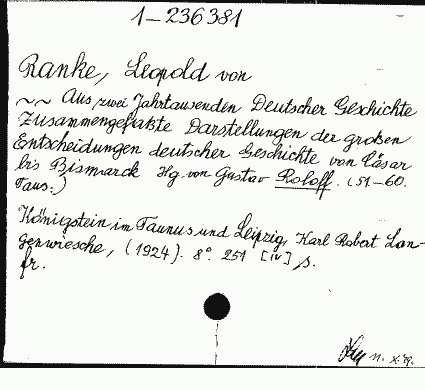 1-236381
Ranke, Leopold von
~~ Aus zwei Jahrtausenden Deutscher Geschichte
Zusammengefaßte Darstellungen der großen
Entscheidungen deutscher Geschichte von Cäsar
bis Bismarck Hg. von Gustav Roloff. (51-60.
Taus.)
Königstein im Taunus und Leipzig, Karl Robert Lan-
gewiesche, (1924). 8° 251 [IV] s.
fr.
11. X.